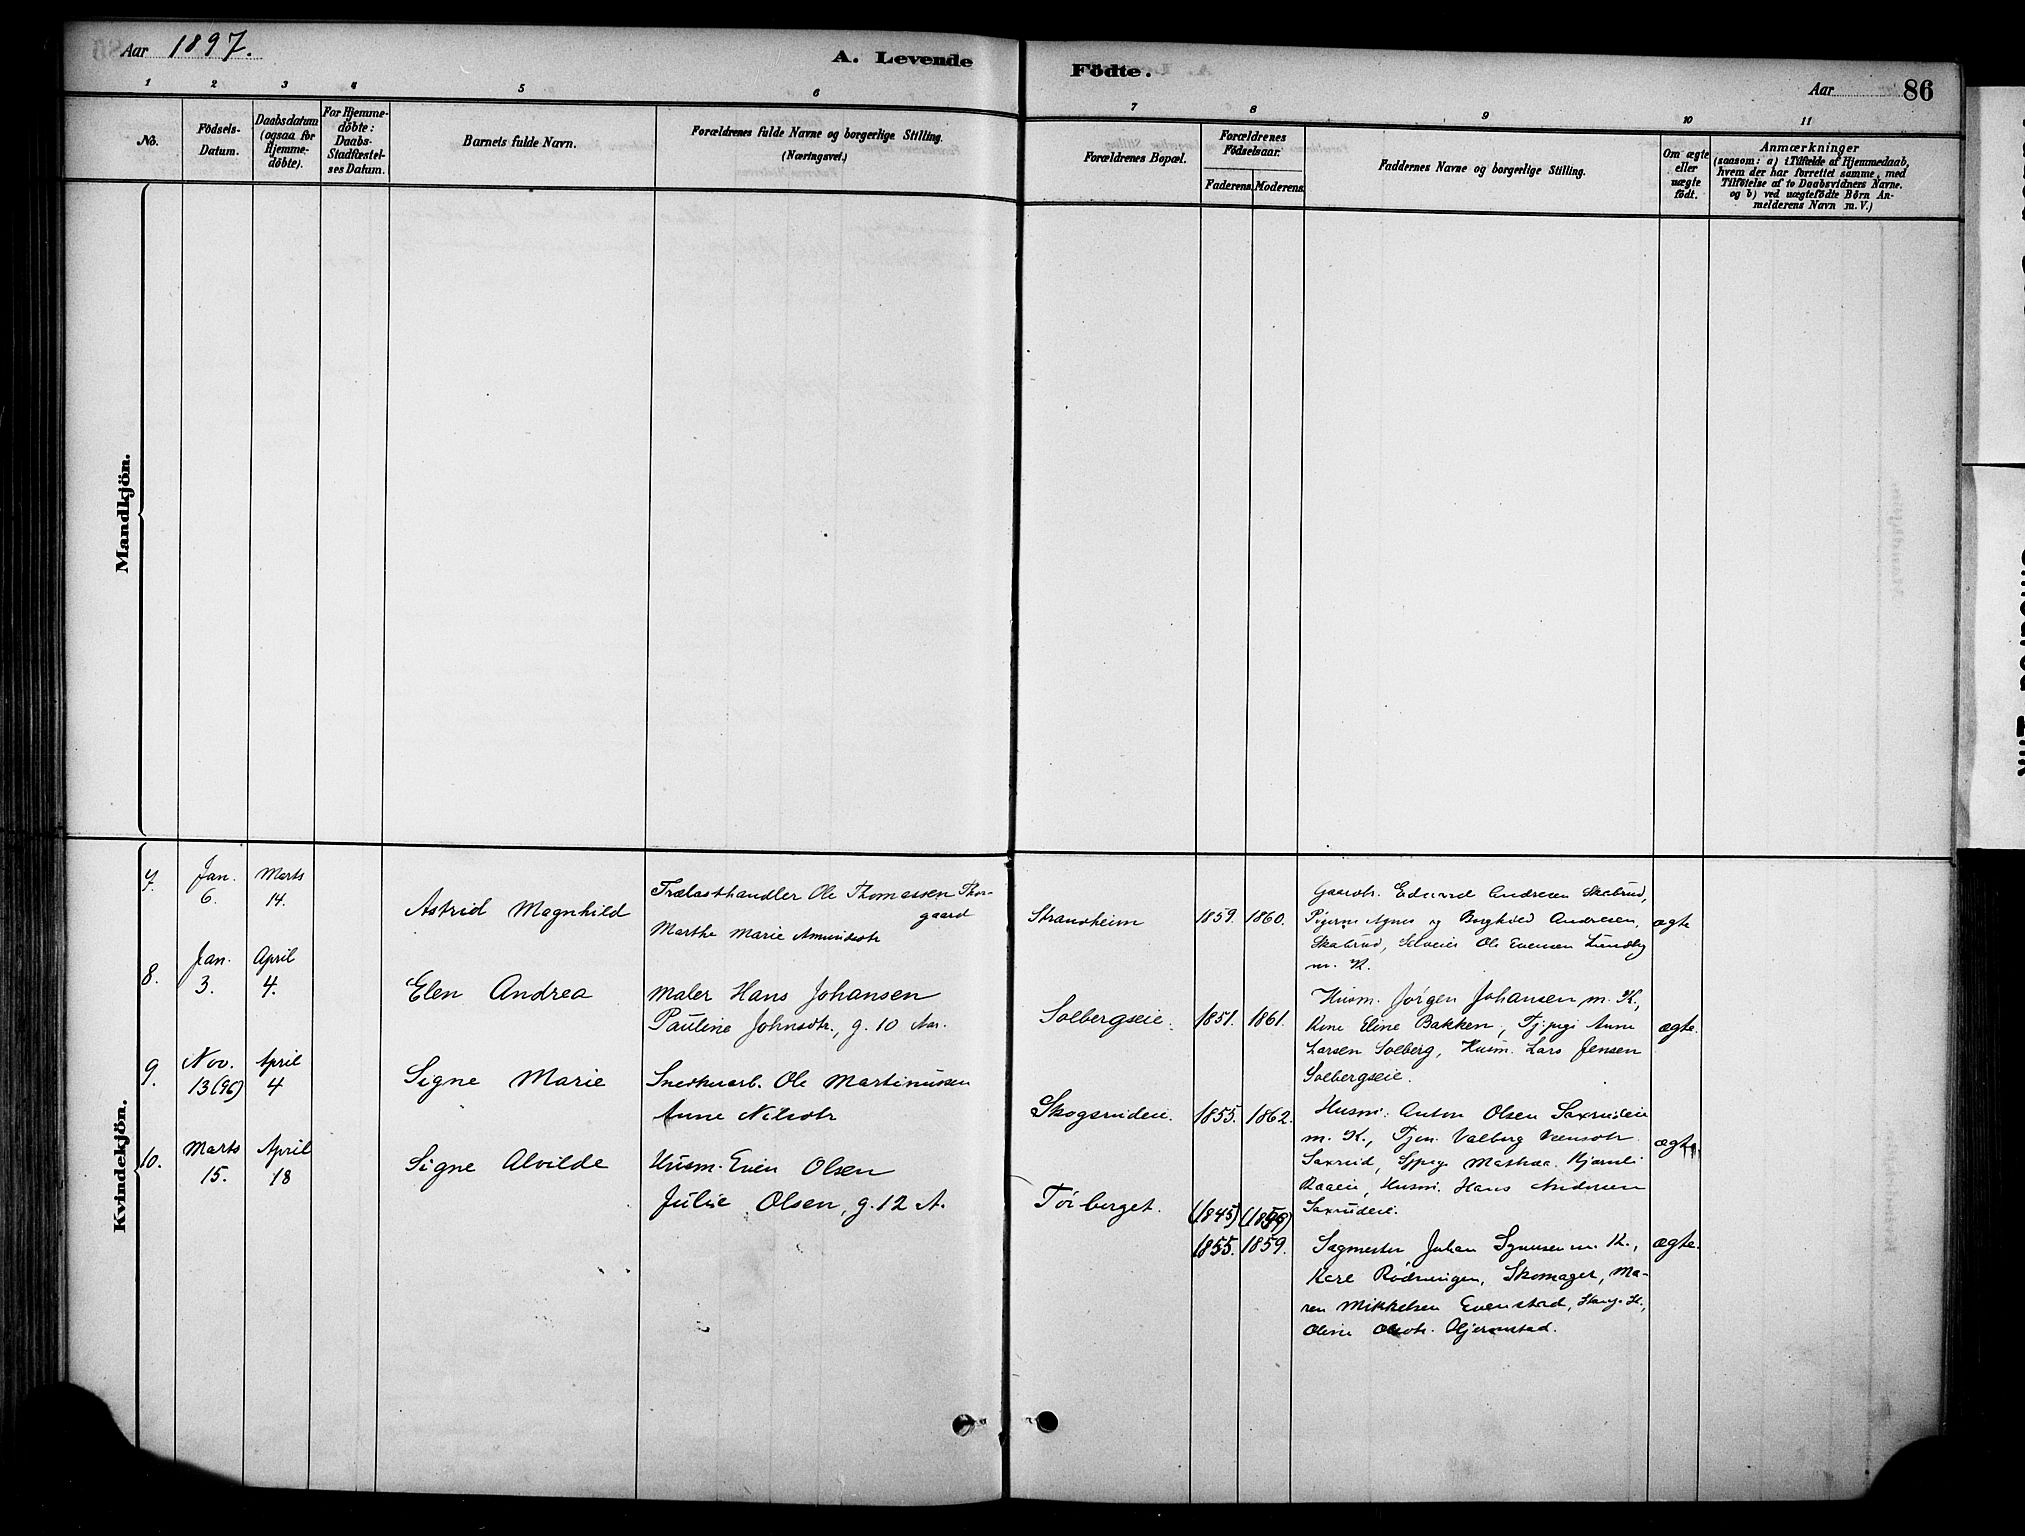 Aar 1897.
A. Levende
Födte.
Aar
86
1 2 3 4 5 6
7 8 9 10 11
No.
Födsels-
Datum.
Daabsdatum
(ogsaa for
Hjemme-
döbte).
For Hjemme-
döbte:
Daabs-
Stadfæstel-
ses Datum.
Barnets fulde Navn.
Forældrenes fulde Navne og borgerlige Stilling.
(Næringsvei.)
Forældrenes Bopæl.
Forældrenes
Födselsaar.
Faderens. Moderens.
Faddernes Navne og borgerlige Stilling.
Om ægte
eller
uægte
födt.
Anmærkninger
(saasom: a) i Tilfælde af Hjemmedaab,
hvem der har forrettet samme, med
Tilföielse af to Daabsvidners Navne.
og b) ved uægtefödte Börn An-
melderens Navn m.V.)
Mandkjön.
Kvindekjön.
7. Jan. 6. Marts 14.
Astrid Magnhild
Trælasthandler Ole Thomassen Thor-
gaard
Marthe Marie Amundsdtr
Strandheim
1859. 1860.
Gaardbr. Edvard Andresen Skabrud,
Pigerne Agnes og Borghild Andresen,
Skabrud, Selveier Ole Evensen Lundby
m. K.
ægte
8. Jan. 3. April 4.
Elen Andrea
Maler Hans Johansen
Pauline Johnsdtr., g. 10 Aar.
Solbergseie.
1851. 1861.
Husm. Jørgen Johansen m. K.,
Kone Eline Bakken, Tj.pige Anne
Larsen Solberg, Husm. Lars Jensen
Solbergseie.
ægte.
9. Nov. 13 (96) April 4
Signe Marie
Snedkerarb. Ole Martinussen
Anne Nilsdtr
Skogsrudeie.
1855. 1862.
Husm. Anton Olsen Saxrudeie
m. K., Tjen. Valborg
Saxrud,
Raaeie, Husm. Hans Andersen
Saxrudeie.
ægte.
10. Marts 15. April 18
Signe Alvilde
Husm. Even Olsen
Julie Olsen, g. 12 A.
Torberget.
(1845) (1859)
1855. 1859.
Sagmester Johan m. K.,
Kare Rødningen, Skomager, Ma-
ren Mikkelsen Evenstad,
Oline Olsdtr. Gjermstad.
ægte.